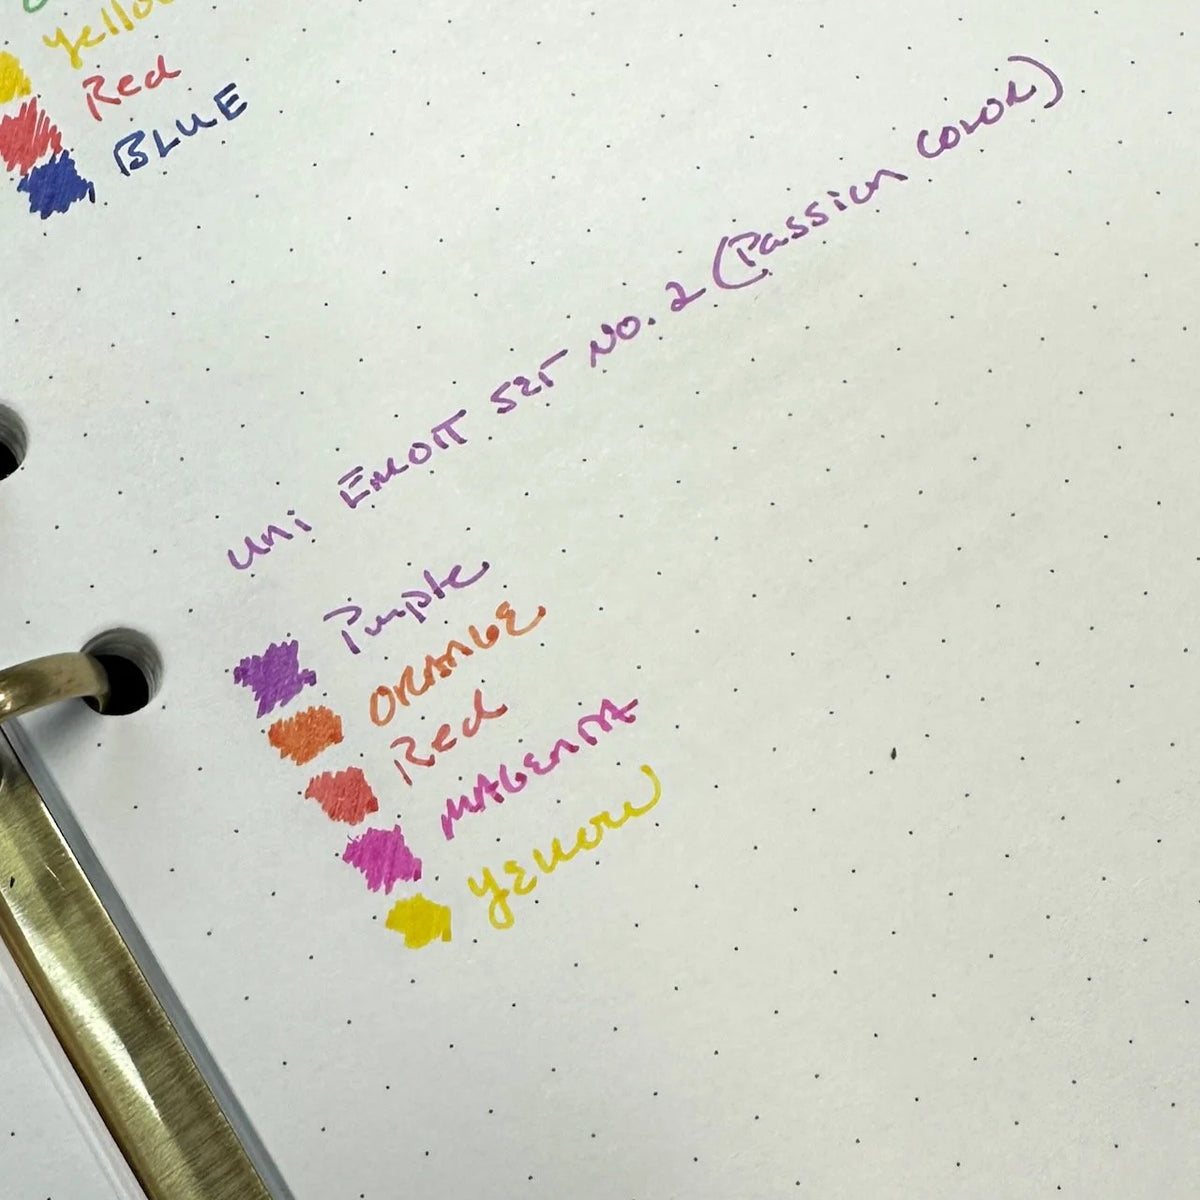 Yello
Red
BLUE
Uni EMOTT SET NO. 2 (Passion COLOR)
Purple
ORANGE
Red
MAGENTA
YELLOW